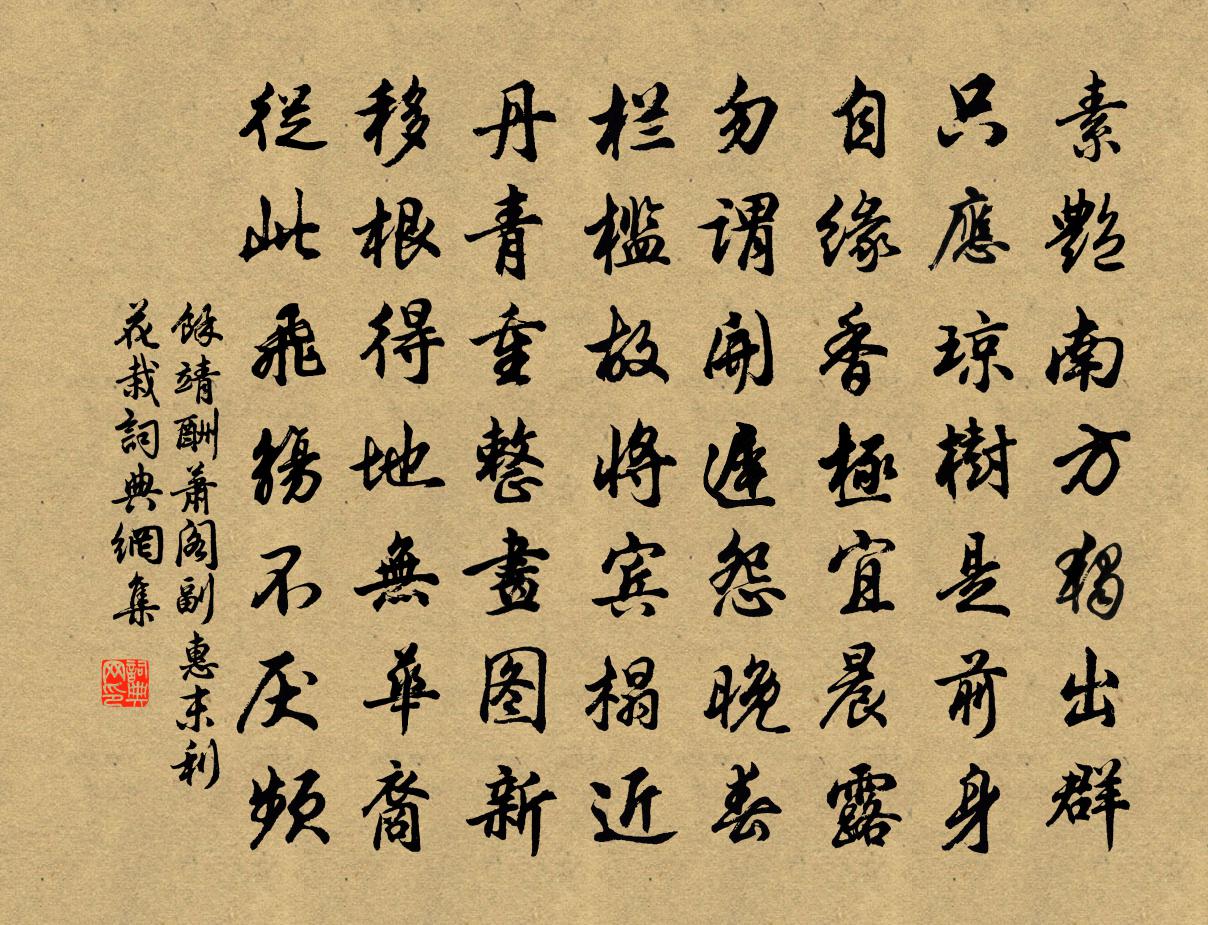 素艷南方獨出群
只應琼樹是前身
自緣香極宜晨露
勿謂開遲怨晚春
栏檻故將宾榻近
丹青重整畫图新
移根得地無華裔
從此飛觴不厌頻
餘靖酬蕭阁副惠末利
花栽詞典網集
詞典网印